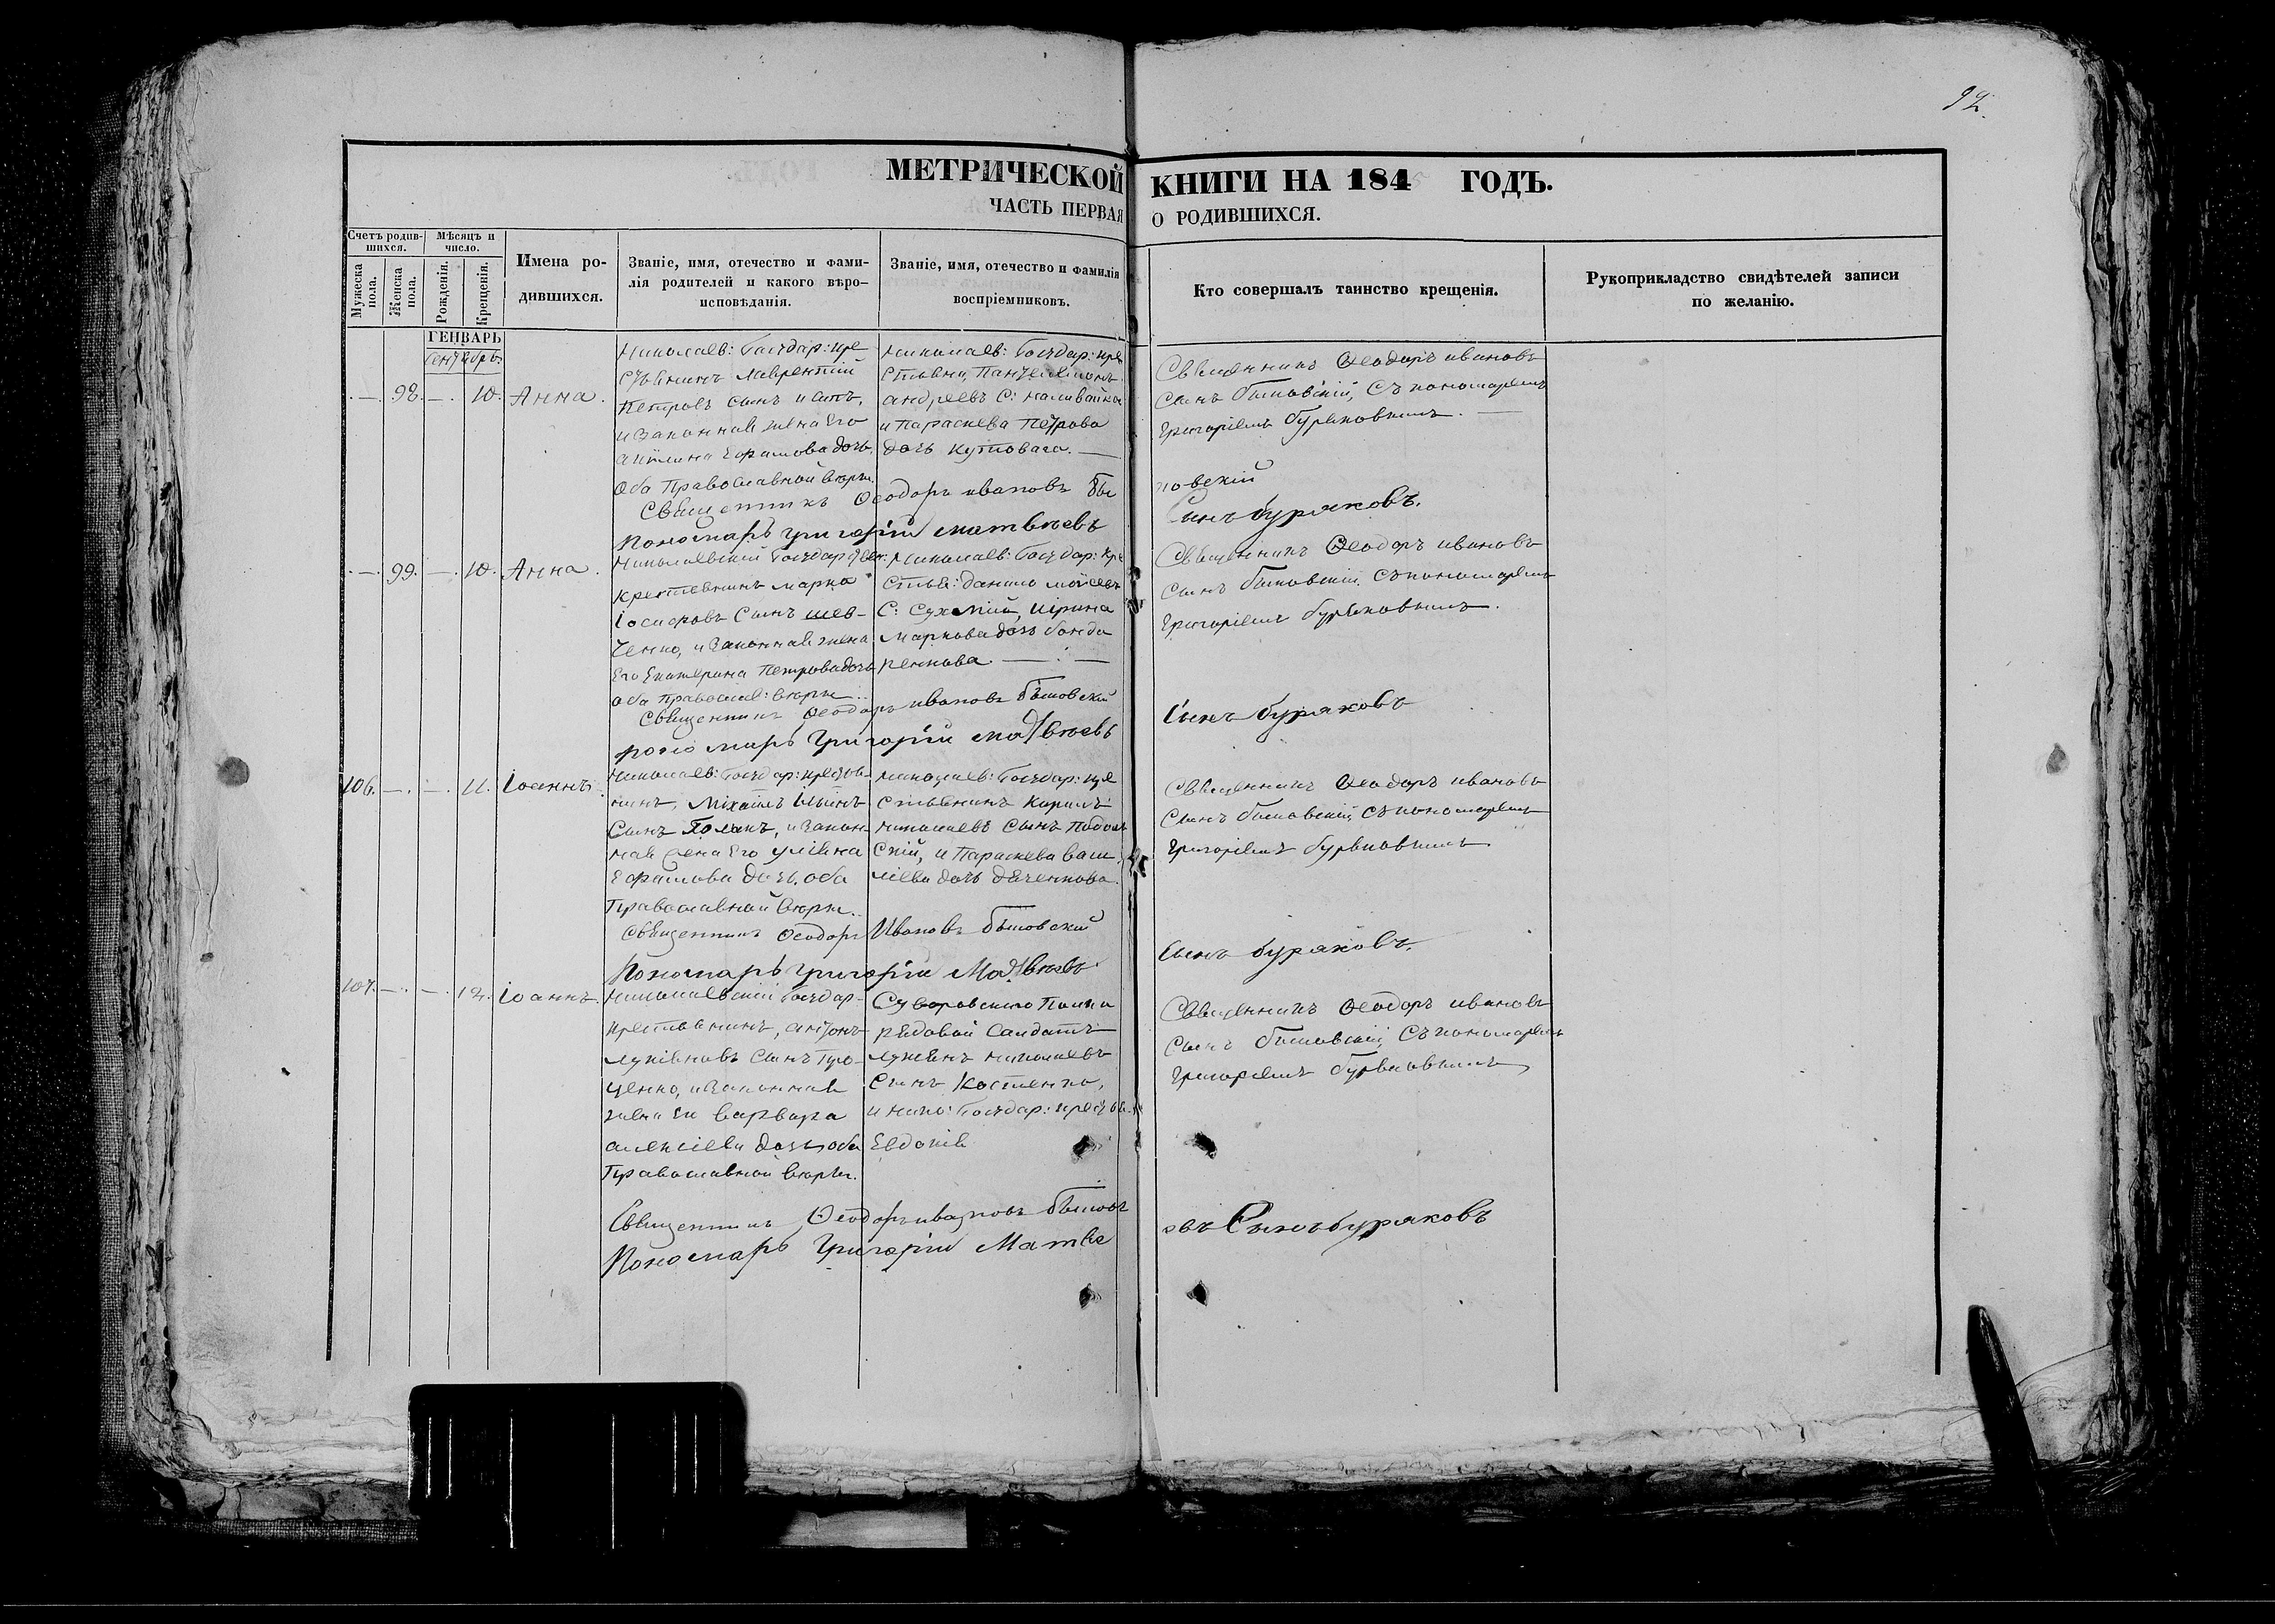 92.
МЕТРИЧЕСКОЙ КНИГИ НА 184 ГОДЪ.
ЧАСТЬ ПЕРВАЯ О РОДИВШИХСЯ.
Счетъ родив-
шихся.
Мужеска пола.
Женска пола.
Мѣсяцъ и
число.
Рожденія.
Крещенія.
Имена ро-
дившихся.
Званіе, имя, отечество и фами-
лія родителей и какого вѣро-
исповѣданія.
Званіе, имя, отечество и фамилія
воспріемниковъ.
Кто совершалъ таинство крещенія.
Рукоприкладство свидѣтелей записи
по желанію.
ГЕНВАРЬ
98. — 10. Анна.
Николаев: Государ: кре
стьянинъ Лаврентій
Петровъ сынъ
и законная жена Его
Ефимова дочь,
Оба Православной вѣры.
Николаев: Государ: кре
стьяни, Пантелимонъ
Андреевъ С: Наливайко
и Параскева Петрова
дочь Кутовага. —
Священникъ Ѳеодоръ Ивановъ
Сынъ Быковскій, Съ пономаремъ
Григоріемъ Буряковымъ. —
Священникъ Ѳеодоръ Ивановъ Бы
ковскій
Пономарь Григорій Матвѣевъ
Сынъ Буряковъ.
99. — 10. Анна.
Николаевскій Государствен:
крестьянинъ Марко
Іосифовъ Сынъ Шев-
ченко, и законная жена
Его Екатерина Петрова дочь
оба Православ: вѣры
Николаев: Государ: кре
стья: Данило Мойсеевъ
С: Сухомлій, Ирина
Маркова дочь Бонда
ренкова. —
Священникъ Ѳеодоръ Ивановъ
Сынъ Быковскій, Съ пономаремъ
Григоріемъ Буряковымъ.
Священникъ Ѳеодоръ Ивановъ Быковскій
Пономарь Григорій Матвѣевъ
Сынъ Буряковъ
106. — 11. Іоаннъ.
Николаев: Государ: крестья-
нинъ, Михаилъ Ильинъ
Сынъ Полякъ, и закон-
ная жена Его Уліяна
Ефимова дочь, оба
Православной вѣры.
Николаев: Государ: кре
стьянинъ Кирилъ
Николаевъ Сынъ Подоль
скій, и Параскева Васи
ліева дочь Дяченкова.
Священникъ Ѳеодоръ Ивановъ
Сынъ Быковскій, Съ пономаремъ
Григоріемъ Буряковымъ.
Священникъ Ѳеодоръ Ивановъ Быковскій
Пономарь Григорій Матвѣевъ
Сынъ Буряковъ.
107. — 12. Іоаннъ.
Николаевскій Государ-
крестьянинъ, Антонъ
Лукіяновъ Сынъ Гро-
ценко, и законная
жена Ея Варвара
Алексіева дочь, оба
Православной вѣры.
Суворовскаго Полка
рядовой Салдатъ
Лукіянъ Николаевъ
Сынъ Костенко,
и Нико: Государ: крестья
Евдокія
Священникъ Ѳеодоръ Ивановъ
Сынъ Быковскій, Съ пономаремъ
Григоріемъ Буряковымъ
Священникъ Ѳеодоръ Ивановъ
Пономарь Григорій Матве
евъ Сынъ Буряковъ